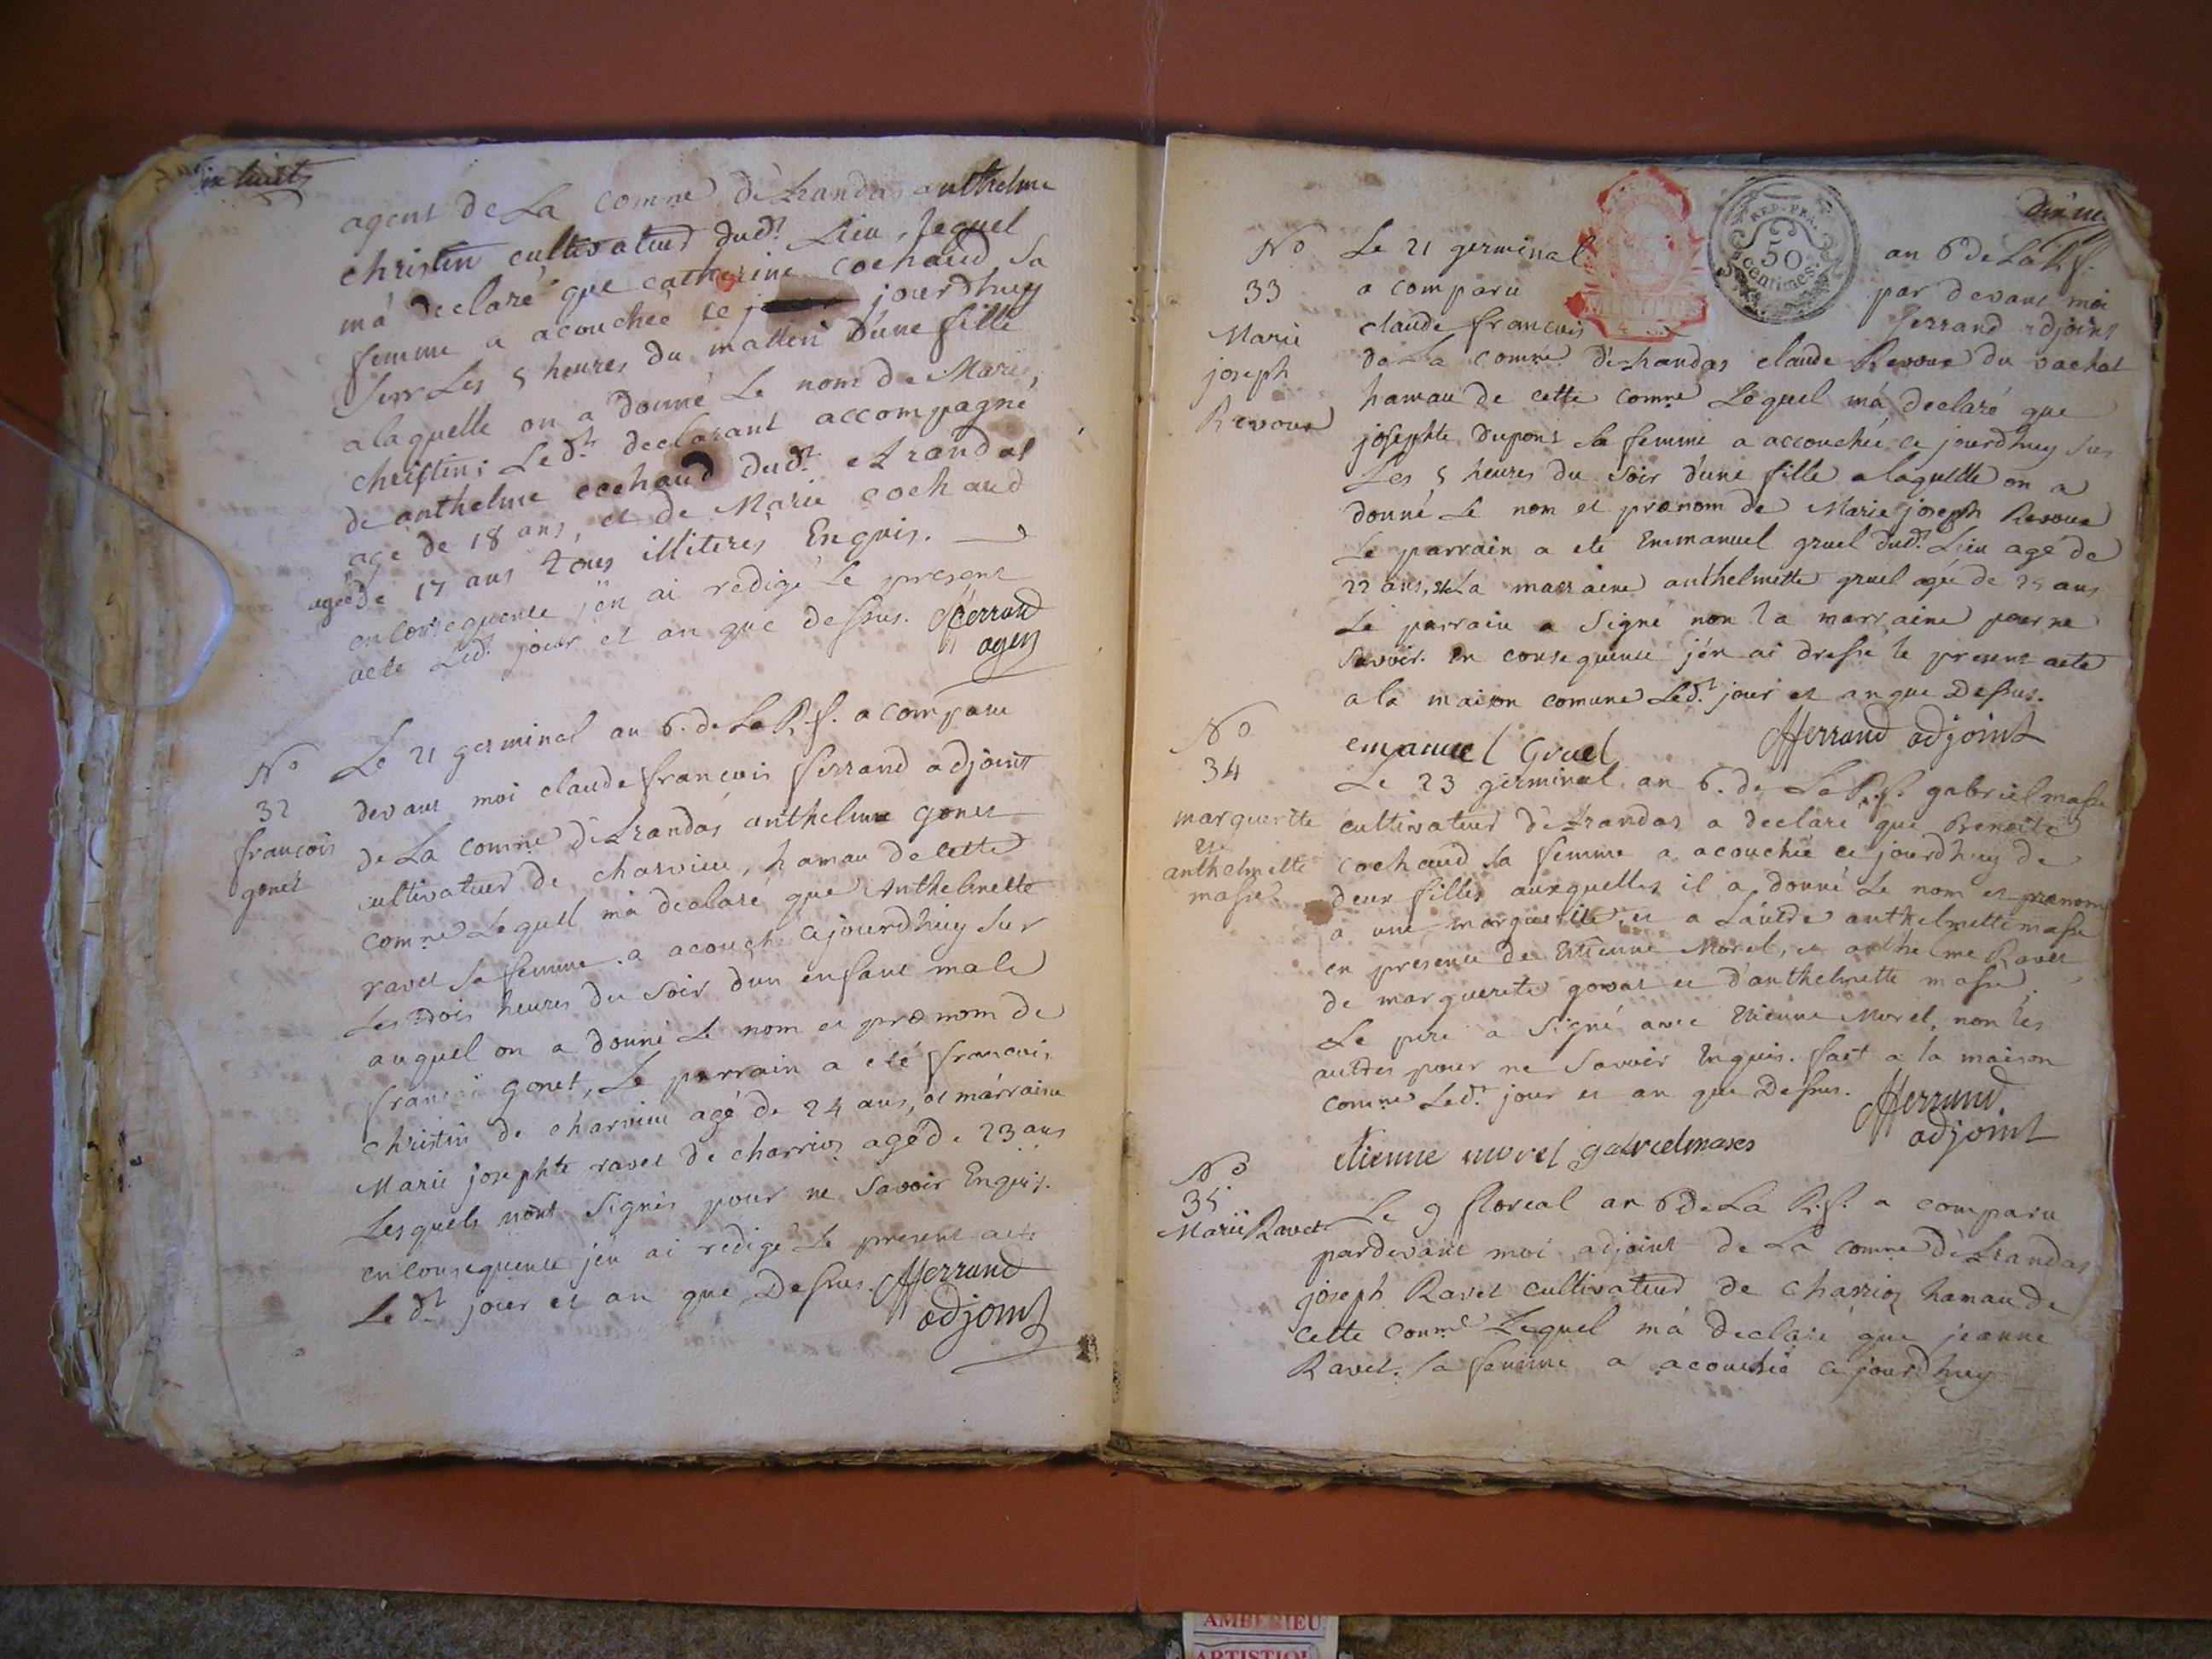 dix huit
agent de La comne d'étrandas anthelme
christin cultivateur dudt Lieu, Lequel
m'a declaré que catherine cochaud sa
femme a acouchée ce jourdhuy
sur Les 5 heures du matten d'une fille
alaquelle on a donné Le nom de Marie
christin: Ledt declarant accompagne
de anthelme cochaud dudt etrandas
age de 18 ans, et de Marie cochaud
agée de 17 ans tous illiterés Enquis.
en consequence j'en ai redigé Le present
acte Ledt jour et an que dessus. fferrand
agen
No
32
françois
gonet
Le 21 germinal an 6. de La R.f. a comparu
devant moi claude françois fferrand adjoint
de La comne d'étrandas anthelme gonet
cultivateur de charvieu, hamau de cette
comne Lequel m'a declaré que Anthelmette
ravet sa femme a acouché cejourdhuy sur
Les trois heures du soir d'un enfant male
auquel on a donné Le nom et prænom de
françoi gonet, Le parrain a eté françois
christin de charvieu agé de 24 ans, et marraine
Marie josephte ravet de charrioz agé de 23 ans
Lesquels n'ont signés pour ne savoir Enquis.
en consequence j'en ai redigé Le present acte
Le dt jour et an que Dessus. fferrand
adjoint
dix neu
No
33
Marie
joseph
Revoux
REP. FRA.
50
centimes.
Le 21 germinal an 6 de La R.f.
a comparu par devant moi
claude françois ferrand adjoint
de La comne d'étrandas claude Revoux du vachat
hamau de cette comne Lequel m'a declaré que
josephte Dupont sa femme a accouchée ce jourdhuy sur
Les 5 heures du soir d'une fille alaquelle on a
donné Le nom et prænom de Marie joseph Revoux
Le parrain a eté Emmanuel gruel dudt Lieu agé de
22 ans, et La marraine anthelmette gruel agée de 25 ans
Le parrain a signé non la marraine pour ne
savoir. En consequence j'en ai dressé le present acte
a la maison comune Ledt jour et an que Dessus.
emanuel Gruel fferrand adjoint
No
34
marguerite
et
anthelmette
masse
Le 23 germinal an 6. de La R.f. gabriel masse
cultivateur d'étrandas a declaré que Benoite
cochaud sa femme a acouchée ce jourdhuy de
deux filles auxquelles il a donné Le nom et prænom
a une marguerite, et a L'autre anthelmette masse
en presence de Etienne Morel, et anthelme Ravet
de marguerite govat et d'anthelmette masse.
Le pere a signé avec Etienne Morel, non les
autres pour ne savoir Enquis. fait a la maison
comne Ledt jour et an que Dessus. fferrand
adjoint
etienne morel gabrielmases
No
35
Marie Ravet
Le 9 floreal an 6 de La R.f. a comparu
pardevant moi adjoint de La comne d'étrandas
joseph Ravet cultivateur de charrioz hamau de
cette comne Lequel m'a declaré que jeanne
Ravet. sa femme a acouchée ce jourdhuy
AMBERIEU